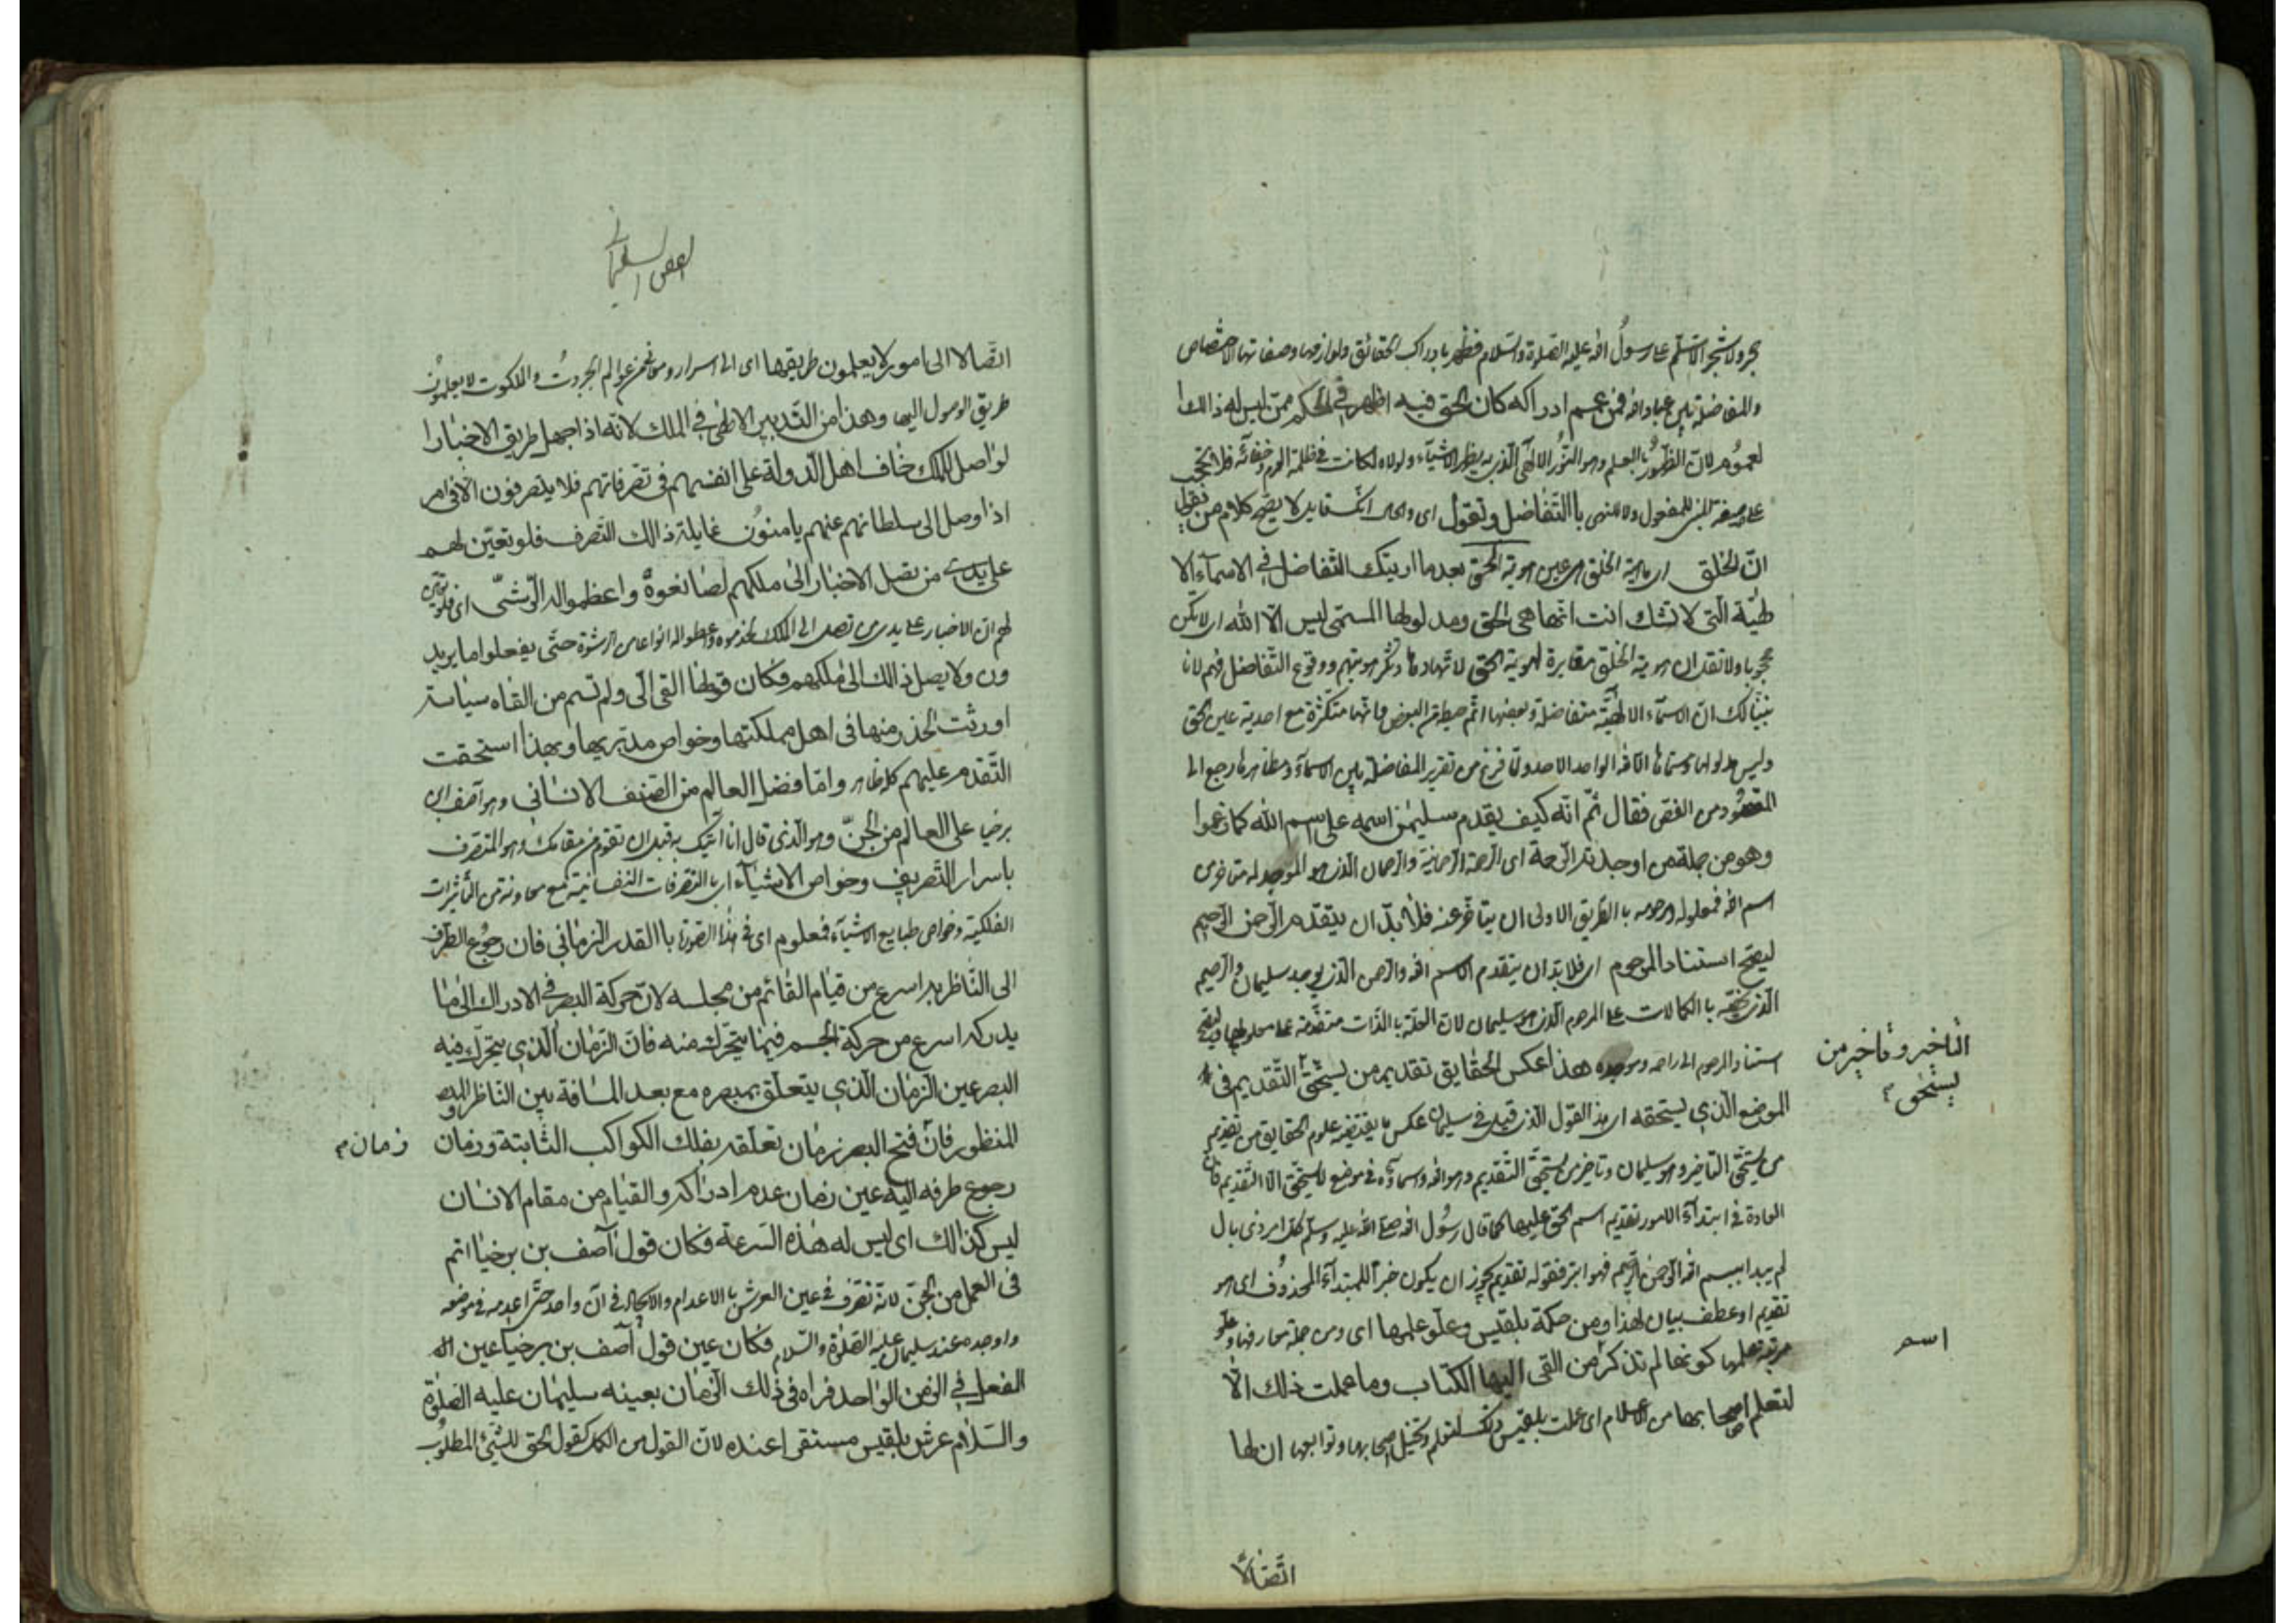 حجر ولا شجر الا سلم على رسول الله عليه الصلوة والسلام فظهر بادراك الحقائق ولوازمها وصفاتها الاختصاص
والمفاضلة بين عباد الله فمن عمم ادراكه كان الحق فيه اظهر في الحكم ممن ليس له ذالك ا
لعموم لان الظهور بالعلم وهو النور الالهى الذى به يظهر الاشياء ولولاه لكانت في ظلمة العدم وخفائه فلا تحجب
على صيغة المبنى للمفعول بالتفاضل وتقول اى والحال انك قايل لا يصح كلام من يقول
ان الخلق اى هوية الخلق هى عين هوية الحق بعدما اريتك التفاضل في الاسماء الا
لهية التى لا تشك انت انها هى الحق ومدلولها المسمى ليس الا الله اى لا تكن
محجوبا ولا تقل ان هوية الخلق مغايرة لهوية الحق ووقوع التفاضل فيهم لانا
بينا لك ان الاسماء الالهية متفاضلة وبعضها اتم حيطة من البعض متكثرة مع احدية عين الحق
وليس مدلولها ومسماها الا الله الواحد الاحد ولما فرغ من تقرير المفاضلة بين الاسماء ومظاهرها رجع الى
المقصود من الفص فقال ثم انه كيف يقدم سليمن اسمه على اسم الله كما زعموا
وهو من جملة من اوجدته الرحمة اى الرحمة الرحمانية والرحمان الذى هو الموجد له متاخر عن
اسم الله فمعلوله ومرحومه با الطريق الاولى ان يتاخر عنه فلا بد ان يتقدم الرحمن الرحيم
ليصح استناد المرحوم اى فلا بد ان يتقدم الاسم الله والرحمن الذى يوجد سليمان والرحيم
الذى يخصه با الكمالات على المرحوم الذى هو سليمان لان العلة با الذات متقدمة على معلولها فيصح
استناد المرحوم الى راحمه وموجده هذا عكس الحقايق تقديم من يستحق التقديم في
التاخير وتاخير من
يستحق
الموضع الذى يستحقه اى هذا القول الذى قيل في سليمان عكس ما يقتضيه علوم الحقايق من تقديم
من يستحق التاخير وهو سليمان وتاخير من يستحق التقديم وهو الله واسماؤه في موضع لا يستحق الا التقديم فان
العادة في ابتداء الامور تقديم اسم الحق عليها كما قال رسول الله صلى الله عليه وسلم كل امر ذى بال
لم يبدا ببسم الله الرحمن الرحيم فهو ابتر فقوله تقديم يجوز ان يكون خبرا للمبتداء المحذوف اى هو
تقديم او عطف بيان لهذا ومن حكمة بلقيس وعلو علمها اى ومن جملة معارفها وعلو
مرتبة علمها كونها لم تذكر من القى اليها الكتاب وما عملت ذلك الا
اسم
لتعلم اصحابها من الاعلام اى عملت بلقيس ذلك لتعلم اصحابها وتوابعها ان لها
اتصالا
الفص السليمانى
اتصالا الى امور لا يعلمون طريقها اى الى اسرار عوالم الجبروت والملكوت لا يعلمون
طريق الوصول اليها وهذا من التدبير الالهى في الملك لانه اذا جهل طريق الاخبار ا
لواصل للملك خاف اهل الدولة على انفسهم في تصرفاتهم فلا يتصرفون الا في امر
اذا وصل الى سلطانهم عنهم يامنون غايلة ذالك التصرف فلو تعين لهم
على يدى من تصل الاخبار الى ملكهم لصانعوه واعظموا له الرشى اى فلو تعين
لهم ان الاخبار على يدى من تصل الى الملك لخدموه واعطوا له انواعا من الرشوة حتى يفعلوا ما يريد
ون ولا يصل ذالك الى ملكهم فكان قولها القى الى ولم تسم من القاه سياسة
اورثت الحذر منها في اهل مملكتها وخواص مدبريها وبهذا استحقت
التقدم عليهم كله ظاهر واما فضل العالم من الصنف الانسانى وهو آصف ابن
برخيا على العالم من الجن وهو الذى قال انا آتيك به قبل ان تقوم من مقامك وهو المتصرف
باسرار التصريف وخواص الاشياء اى با التصرفات النفسانية مع معاونة من التأثيرات
الفلكية وخواص طبايع الاشياء فمعلوم اى في هذا الصورة با القدر الزمانى فان رجوع الطرف
الى الناظر به اسرع من قيام القائم من مجلسه لان حركة البصر في الادراك الى ما
يدركه اسرع من حركة الجسم فيما يتحرك منه فان الزمان الذى يتحرك فيه
البصر عين الزمان الذى يتعلق بمبصره مع بعد المسافة بين الناظر و
المنظور فان فتح البصر زمان تعلقه بفلك الكواكب الثابتة وزمان
زمان
رجوع طرفه اليه عين زمان عدم ادراكه والقيام من مقام الانسان
ليس كذالك اى ليس له هذه السرعة فكان قول آصف بن برخيا اتم
في العمل من الجن لانه تصرف في عين العرش با الاعدام والايجاد في آن واحد حتى اعدمه في موضعه
واوجده عند سليمان عليه الصلوة والسلام فكان عين قول آصف بن برخيا عين
الفعل في الزمن الواحد فراه في ذلك الزمان بعينه سليمان عليه الصلوة
والسلام عرش بلقيس مستقرا عنده لان القول من الكمل كقول الحق للشئ المطلوب